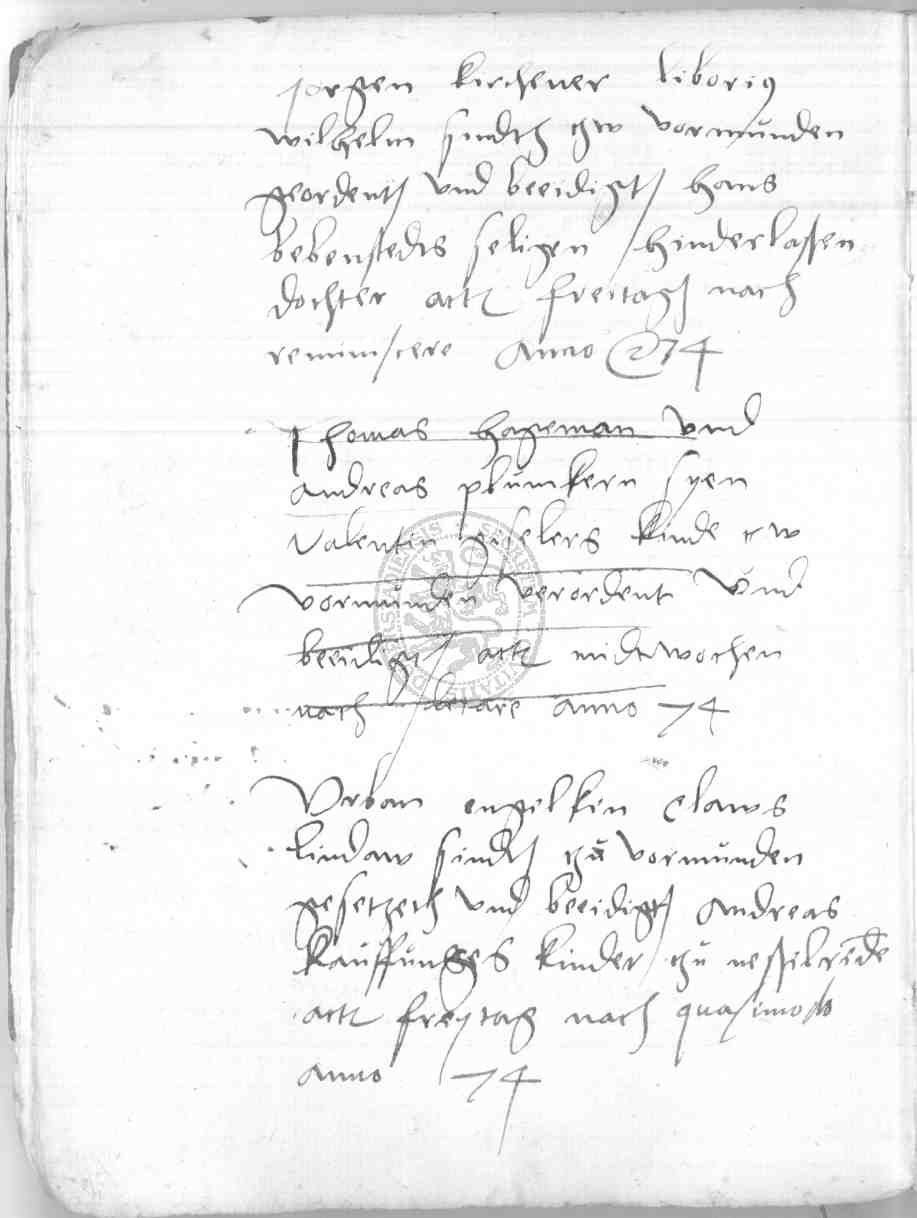 Jorgen kirchener liborius
wilhelm sindth zw vormunden
geordenth vnd beeidigth hans
bebenstedts seligen hinderlassen
dochter actum freitagk nach
reminiscere Anno 74
Thomas hageman vnd
andreas plumkern syen
Valentin giselers kinde zw
vormunden verordent vnd
beeidigt actum midtwochen
nach letare anno 74
Vrban engilken Claws
lindaw sindth zu vormunden
gesetzeth vnd beeidigth Andreas
kauffunges kinder zu nessilrede
actum freytag nach quasimodo
anno 74